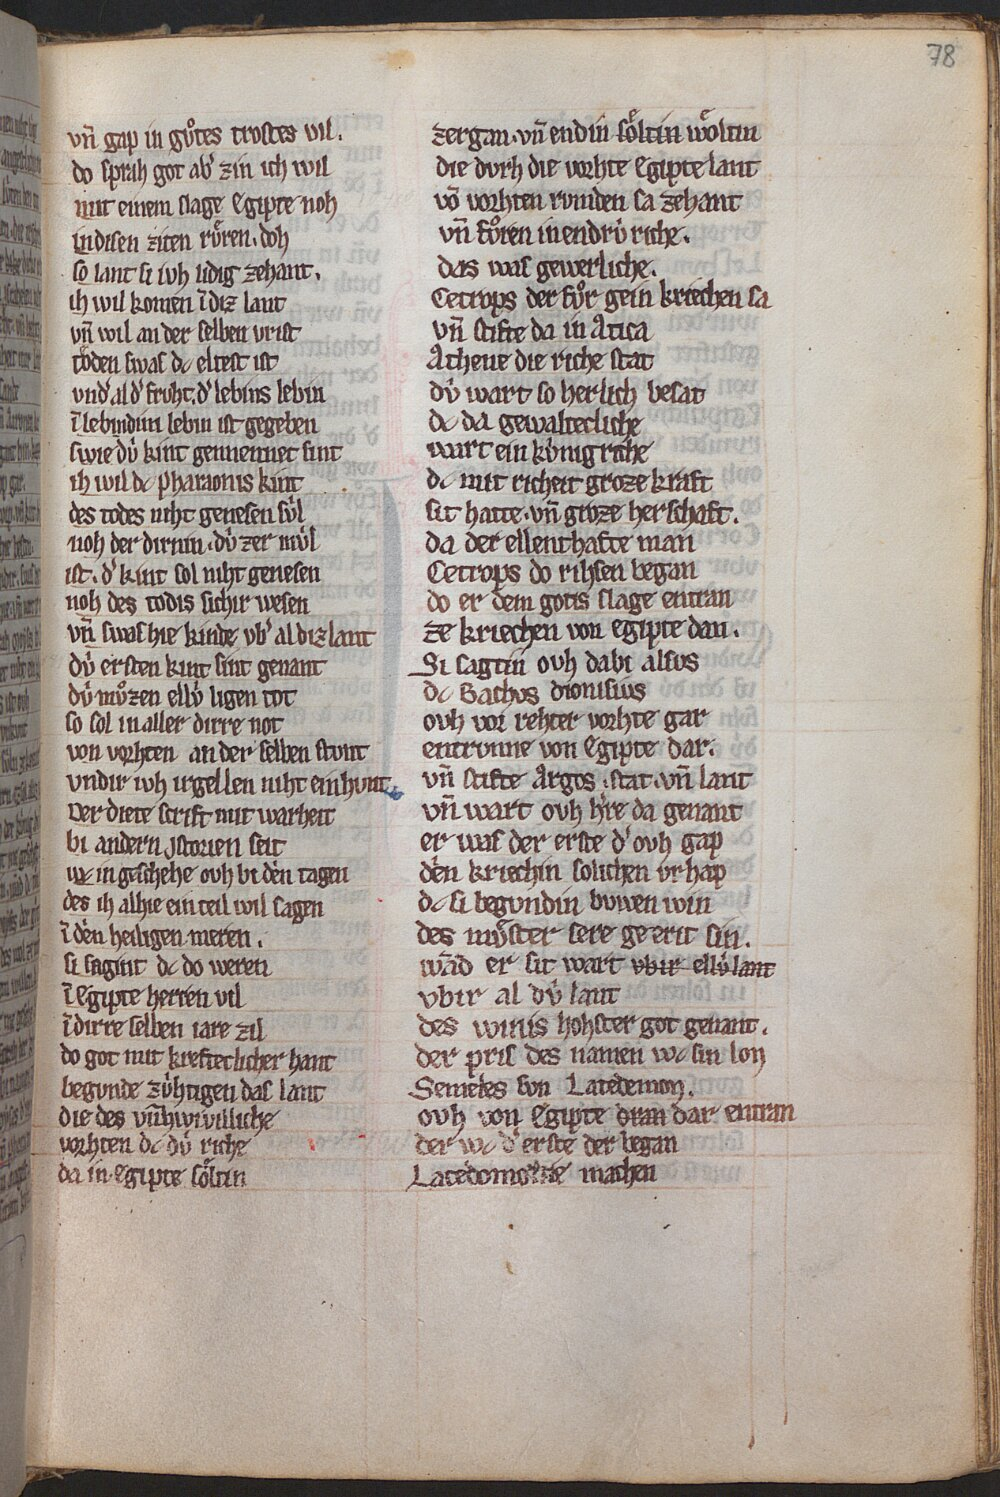 78
vn̄ gap in gůtes trostes vil.
do sprah got ab' zin ich wil
mit einem slage Egipte noh
in disen ziten růren. doh
so lant si ivh lidig zehant.
ih wil komen ī diz lant
vn̄ wil an der selben vrist
tôden swas dc eltest ist
vnd' al d' fruht. d' lebins lebin
ī lebindim lebin ist gegeben
swie dv̍ kint gennennet sint
ih wil dc pharaonis kint
des todes niht genesen sv̍l
noh der dirnin. dv̍ zer mv̍l
ist. d' kint sol niht genesen
noh des todis sichir wesen
vn̄ swas hie kinde vb' al diz lant
dv̍ ersten kint sint genant
dv̍ můzen ellv̍ ligen tot
so sol in aller dirre not
von vorhten an der selben stvnt
vndir ivh irgellen niht ein hvnt.
Der diete scrift mit warheit
bi andern ystorien seit
wc in geschehe ovh bi den tagen
des ih alhie ein teil wil sagen
ī den heiligen meren.
si sagint dc do weren
ī Egipte herren vil
ī dirre selben iare zil
do got mit kreftetlicher hant
begvnde zv̍htigen das lant
die des
vorhten dc dv̍ riche
da in Egipte sôltin
zergan. vn̄ endin sôltin wôltin
die dvrh die vorhte Egipte lant
vō vorhten rvmden sa zehant
vn̄ fůren in endrv̍ riche.
das was gewerliche.
Cecrops der fůr gein kriechen sa
vn̄ stifte da in Atica
Athene die riche stat
dv̍ wart so herlich besat
dc da gewaltecliche
wart ein kv̍nigriche
dc mit richeit groze kraft
sit hatte. vn̄ groze herschaft.
da der ellenthafte man
Cecrops do rihsen began
do er dem gotis slage entran
ze kriechen von egipte dan.
Si sagtin ovh dabi alsvs
dc Bachvs dionisius
ovh vor rehter vorhte gar
entrvnne von Egipte dar.
vn̄ stifte Argos. stat. vn̄ lant
vn̄ wart ovh h're da genant
er was der erste d' ovh gap
den kriechin solichen vrhap
dc si begvndin bvwen win
des mv̊ster sere geerit sin.
wād er sit wart vbir ellv̍ lant
vbir al dv̍ lant
des winis hohster got genant.
der pris des namen wc sin lon
Semeles svn Lacedemon.
ovh von Egipte dran dar entran
der wc d' erste der began
machen